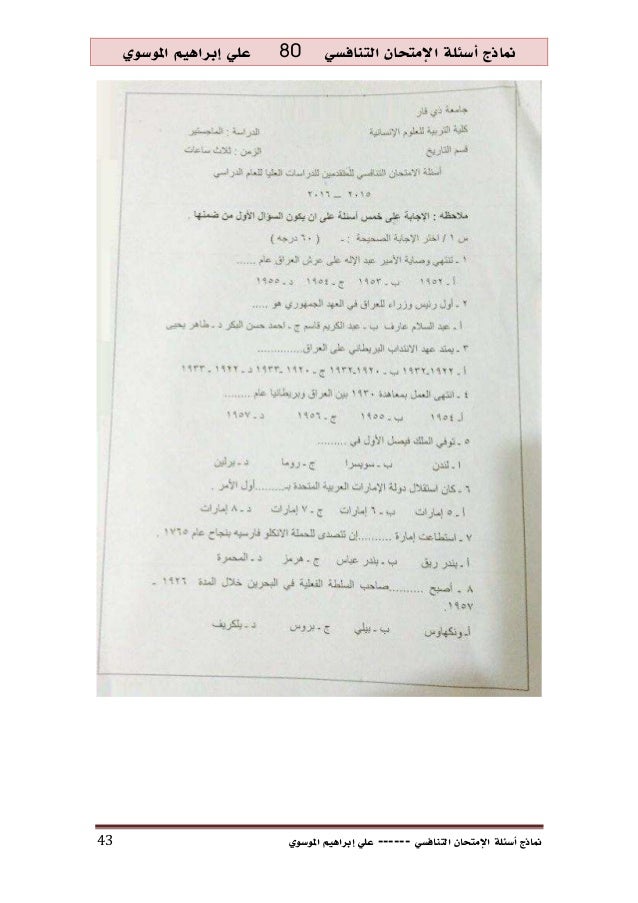 نماذج أسئلة الإمتحان التنافسي 80 علي إبراهيم الموسوي
جامعة ذي قار
كلية التربية للعلوم الإنسانية الدراسة : الماجستير
قسم التاريخ الزمن : ثلاث ساعات
أسئلة الامتحان التنافسي للمتقدمين للدراسات العليا للعام الدراسي
٢٠١٥ – ٢٠١٦
ملاحظه : الإجابة على خمس أسئلة على ان يكون السؤال الأول من ضمنها .
س ١ / اختر الإجابة الصحيحة : - ( ٦٠ درجه )
١ - تنتهي وصاية الأمير عبد الإله على عرش العراق عام ......
أ - ١٩٥٢ ب - ١٩٥٣ ج - ١٩٥٤ د - ١٩٥٥
٢ - أول رئيس وزراء للعراق في العهد الجمهوري هو .....
أ - عبد السلام عارف ب - عبد الكريم قاسم ج - احمد حسن البكر د - طاهر يحيى
٣ - يمتد عهد الانتداب البريطاني على العراق..............
أ - ١٩٢٢-١٩٣٢ ب - ١٩٢٠-١٩٣٢ ج - ١٩٢٠-١٩٣٣ د - ١٩٢٢ - ١٩٣٣
٤ - انتهى العمل بمعاهدة ١٩٣٠ بين العراق وبريطانيا عام ........
أ- ١٩٥٤ ب - ١٩٥٥ ج - ١٩٥٦ د - ١٩٥٧
٥ - توفي الملك فيصل الأول في .........
ا - لندن ب - سويسرا ج - روما د - برلين
٦ - كان استقلال دولة الإمارات العربية المتحدة بـ.........أول الأمر .
أ - ٥ إمارات ب - ٦ إمارات ج - ٧ إمارات د - ٨ إمارات
٧ - استطاعت إمارة ..........إن تتصدى للحملة الانكلو فارسيه بنجاح عام ١٧٦٥ .
أ - بندر ريق ب - بندر عباس ج - هرمز د - المحمرة
٨ - أصبح ..........صاحب السلطة الفعلية في البحرين خلال المدة ١٩٢٦ -
١٩٥٧.
أ- ونكهاوس ب - بيلي ج - بروس د - بلكريف
نماذج أسئلة الإمتحان التنافسي ------ علي إبراهيم الموسوي 43